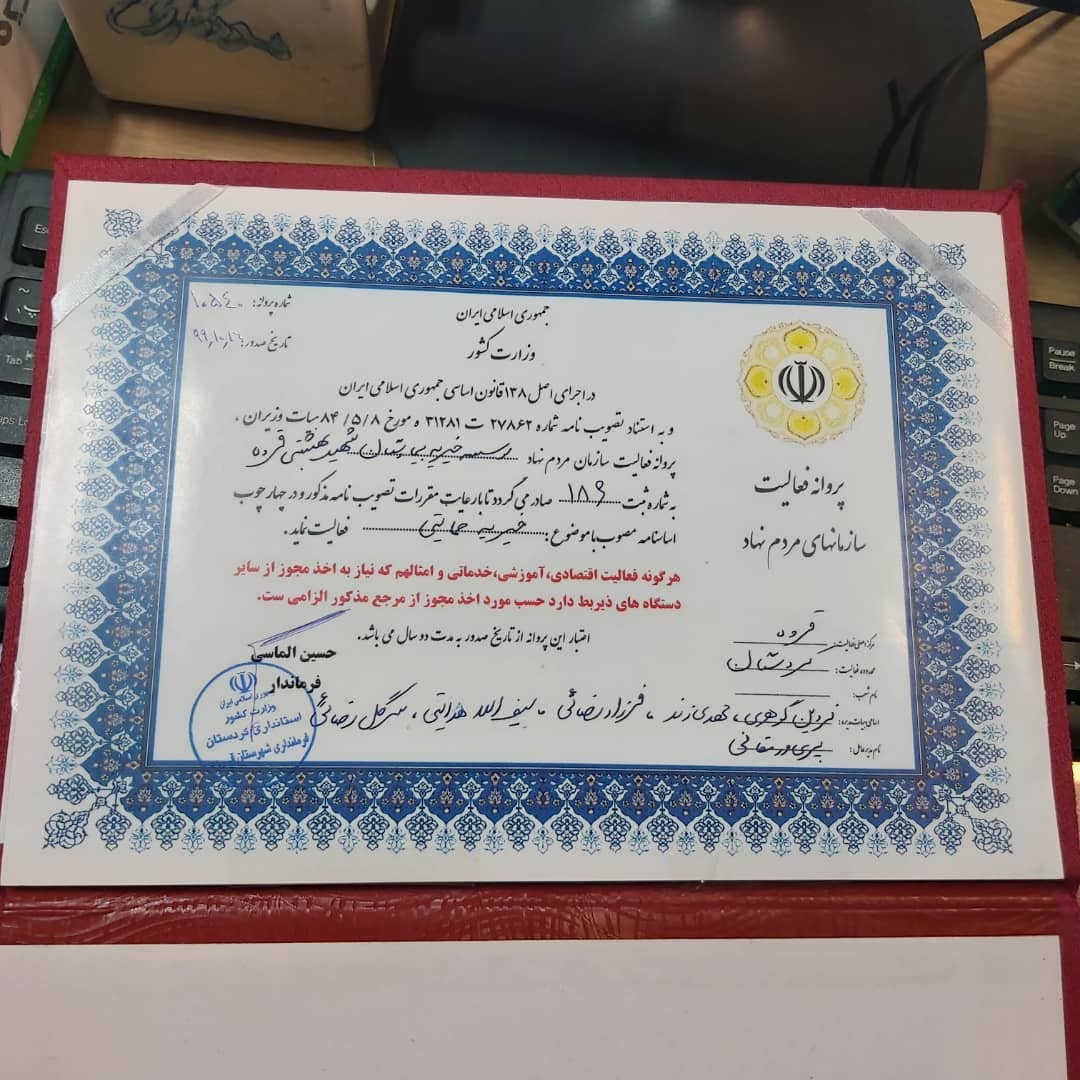 جمهوری اسلامی ایران
وزارت کشور
شماره پروانه: ۱۰۵۴۰
تاریخ صدور: ۹۹,۱۰,۱۶
در اجرای اصل ۱۳۸ قانون اساسی جمهوری اسلامی ایران
و به استناد تصویب نامه شماره ۲۷۸۶۲ ت ۳۱۲۸۱ ه مورخ ۸۴/۵/۸ هیات وزیران ،
پروانه فعالیت سازمان مردم نهاد موسسه خیریه بیمارستان شهید بهشتی قروه
به شماره ثبت ۱۸۶ صادر می گردد تا با رعایت مقررات تصویب نامه مذکور و در چهار چوب
اساسنامه مصوب با موضوع : خیریه حمایتی فعالیت نماید .
هرگونه فعالیت اقتصادی،آموزشی،خدماتی و امثالهم که نیاز به اخذ مجوز از سایر
دستگاه های ذیربط دارد حسب مورد اخذ مجوز از مرجع مذکور الزامی ست.
اعتبار این پروانه از تاریخ صدور به مدت دو سال می باشد .
حسین الماسی
فرماندار
پروانه فعالیت
سازمانهای مردم نهاد
مرکز اصلی فعالیت: قروه
محدوده فعالیت: کردستان
نام شعب:
اسامی هیات مدیره: فردین گوهری ، مهدی زند ، فرزاد رضائی ، سیف الله هدایتی ، گل رضائی
نام مدیرعامل:
وزارت کشور
استانداری کردستان
فرمانداری شهرستان
Esc
Tab
Caps Lo
Pause
Break
Page
Up
Page
Down